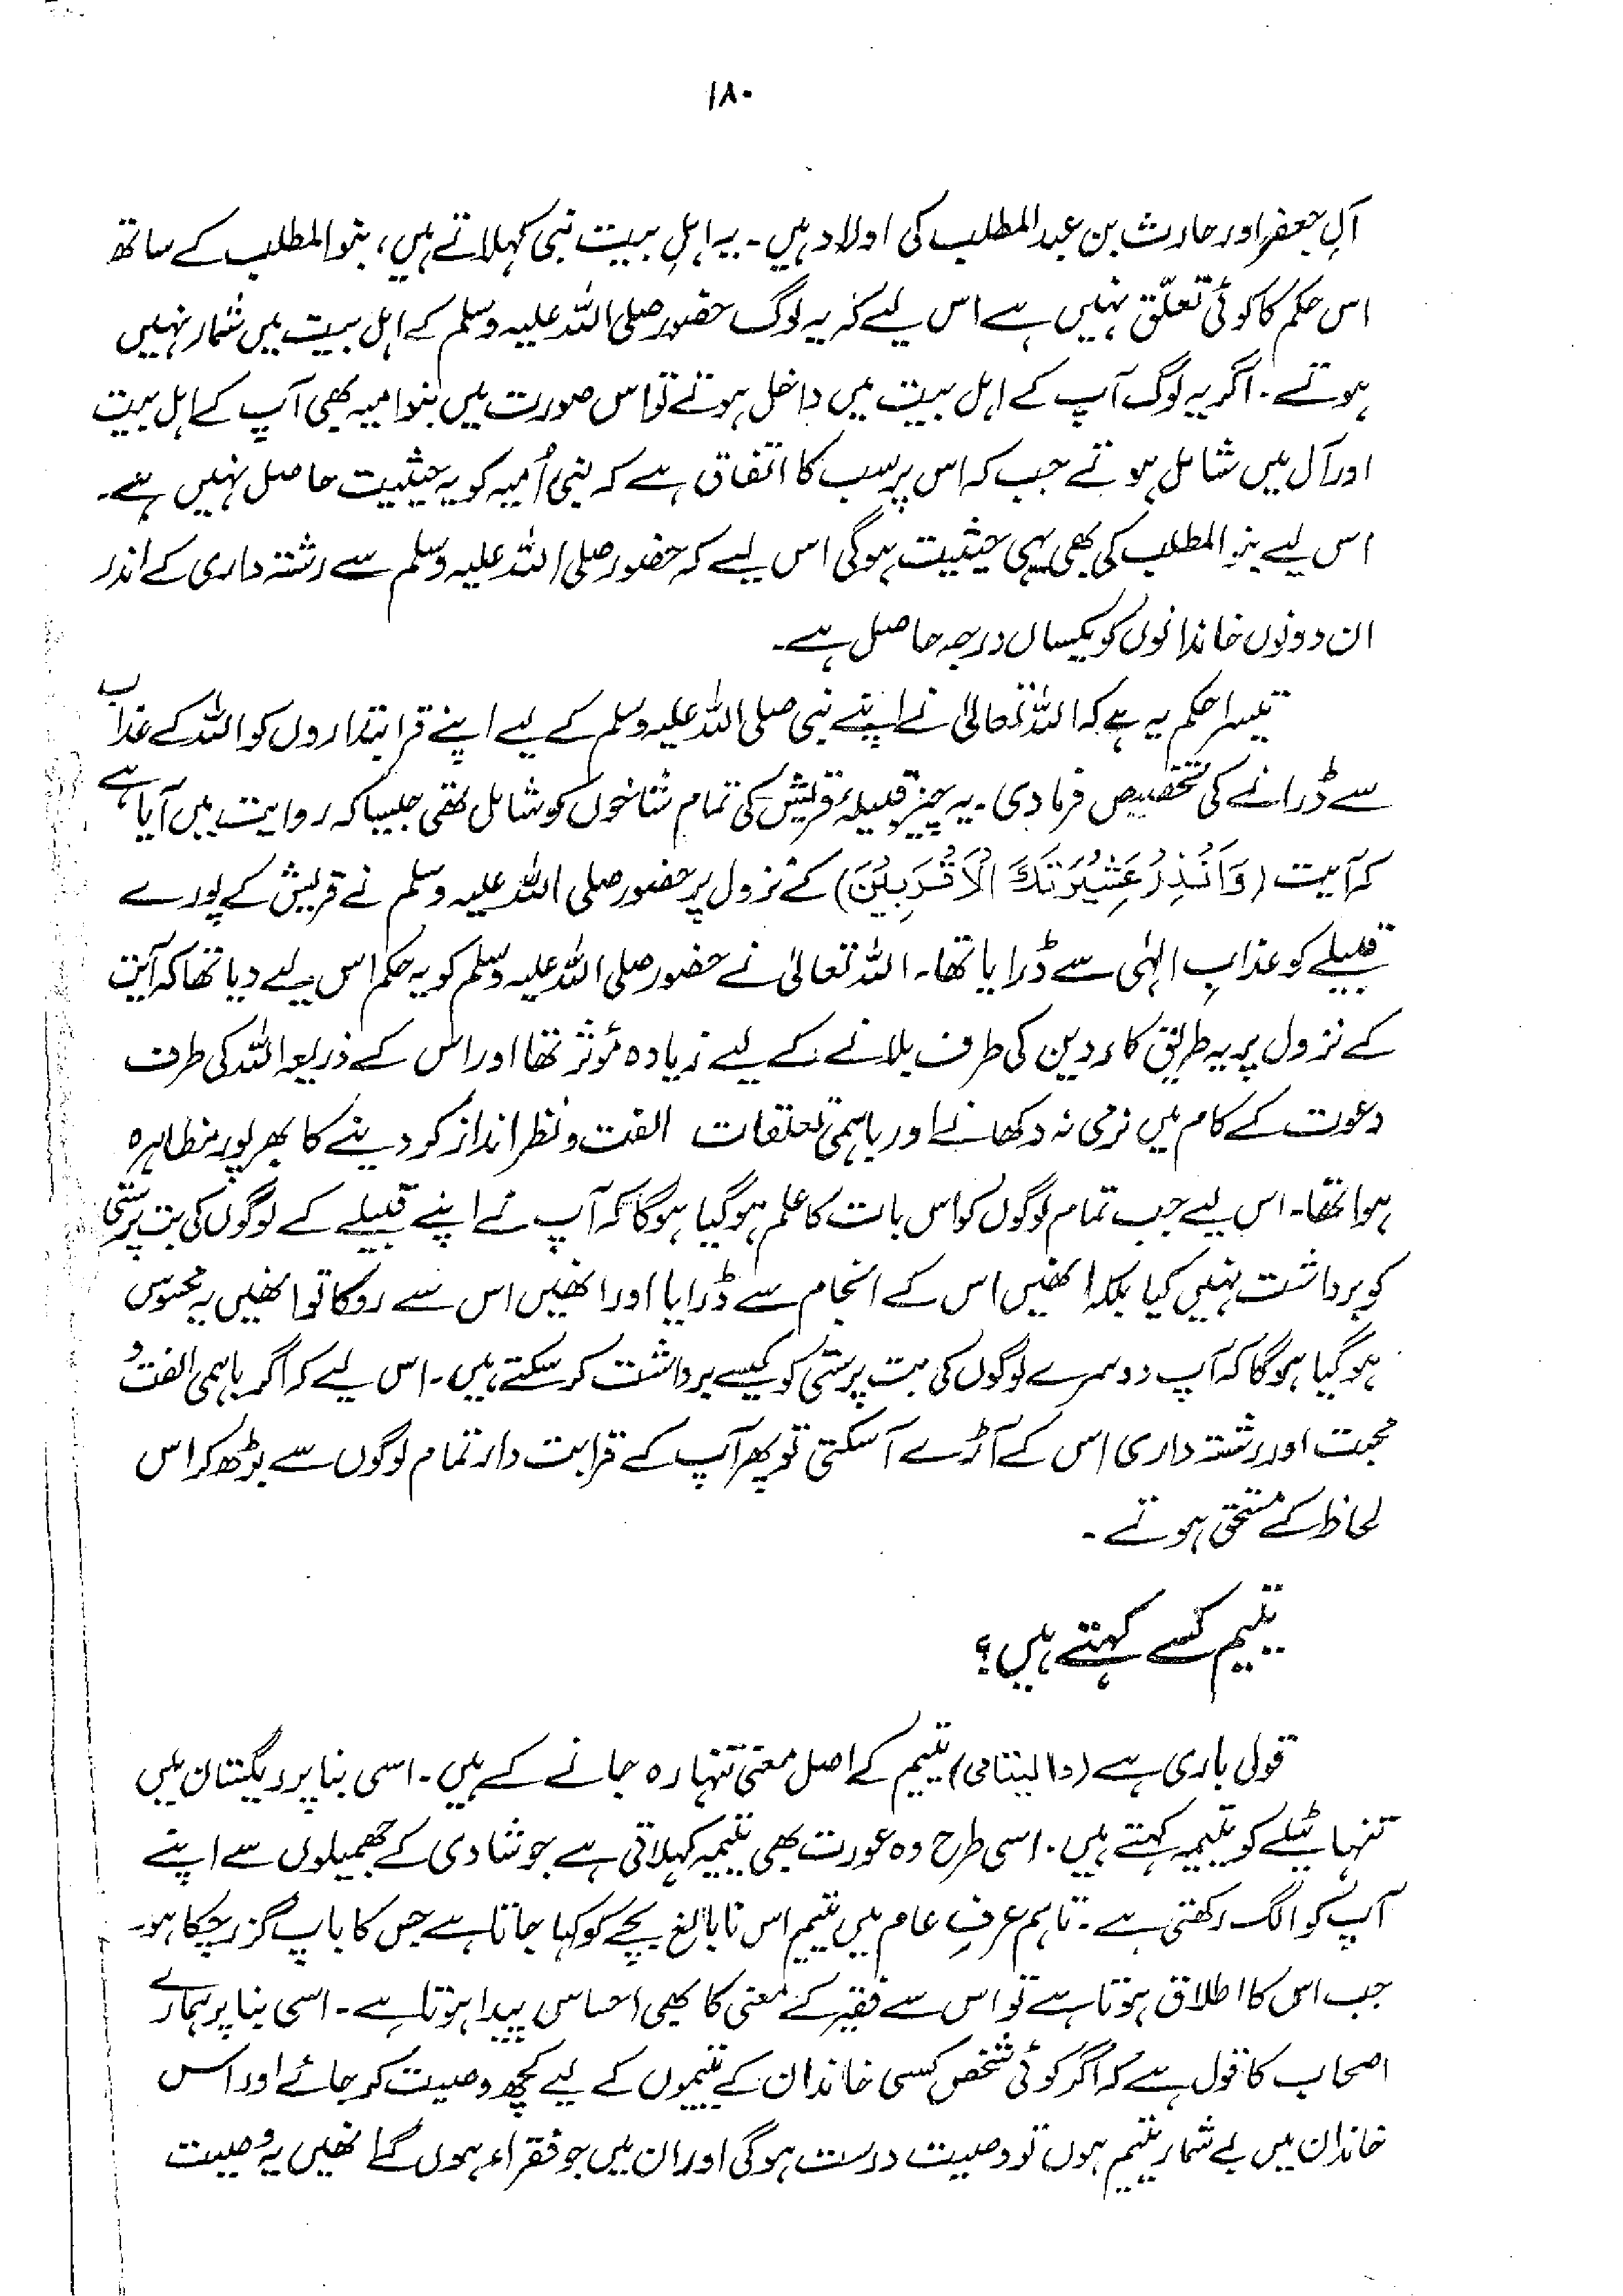 ۱۸۰
آلِ جعفر اور حارث بن عبدالمطلب کی اولاد ہیں۔ یہ اہلِ بیت نبی کہلاتے ہیں، بنوالمطلب کے ساتھ
اس حکم کا کوئی تعلّق نہیں ہے اس لیے کہ یہ لوگ حضور صلی اللہ علیہ وسلم کے اہل بیت میں شمار نہیں
ہوتے۔ اگر یہ لوگ آپ کے اہل بیت میں داخل ہوتے تو اس صورت میں بنوامیہ بھی آپ کے اہل بیت
اور آل میں شامل ہوتے جب کہ اس پر سب کا اتفاق ہے کہ بنی اُمیہ کو یہ حیثیت حاصل نہیں ہے۔
اس لیے بنو المطلب کی بھی یہی حیثیت ہوگی اس لیے کہ حضور صلی اللہ علیہ وسلم سے رشتہ داری کے اندر
ان دونوں خاندانوں کو یکساں درجہ حاصل ہے۔
تیسرا حکم یہ ہے کہ اللہ تعالیٰ نے اپنے نبی صلی اللہ علیہ وسلم کے لیے اپنے قرابتداروں کو اللہ کے عذاب
سے ڈرانے کی تخصیص فرما دی۔ یہ چیز قبیلۂ قریش کی تمام شاخوں کو شامل تھی جیسا کہ روایت میں آیا ہے
کہ آیت (وَاَنْذِرْ عَشِیْرَتَکَ الْاَقْرَبِیْنَ) کے نزول پر حضور صلی اللہ علیہ وسلم نے قریش کے پورے
قبیلے کو عذابِ الٰہی سے ڈرایا تھا۔ اللہ تعالیٰ نے حضور صلی اللہ علیہ وسلم کو یہ حکم اس لیے دیا تھا کہ آیت
کے نزول پر یہ طریق کار دین کی طرف بلانے کے لیے زیادہ مؤثر تھا اور اس کے ذریعہ اللہ کی طرف
دعوت کے کام میں نرمی نہ دکھانے اور باہمی تعلقات الفت و نظر انداز کر دینے کا بھرپور مظاہرہ
ہوا تھا۔ اس لیے جب تمام لوگوں کو اس بات کا علم ہو گیا ہوگا کہ آپ نے اپنے قبیلے کے لوگوں کی بت پرستی
کو برداشت نہیں کیا بلکہ انھیں اس کے انجام سے ڈرایا اور انھیں اس سے روکا تو انھیں یہ محسوس
ہو گیا ہوگا کہ آپ دوسرے لوگوں کی بت پرستی کو کیسے برداشت کر سکتے ہیں۔ اس لیے کہ اگر باہمی الفت و
محبت اور رشتہ داری اس کے آڑے آ سکتی تو پھر آپ کے قرابت دار تمام لوگوں سے بڑھ کر اس
لحاظ کے مستحق ہوتے۔
یتیم کسے کہتے ہیں؟
قول باری ہے (والیتامی) یتیم کے اصل معنی تنہا رہ جانے کے ہیں۔ اسی بنا پر ریگستان میں
تنہا ٹیلے کو یتیمیہ کہتے ہیں۔ اسی طرح وہ عورت بھی یتیمہ کہلاتی ہے جو شادی کے جھمیلوں سے اپنے
آپ کو الگ رکھتی ہے۔ تاہم عرفِ عام میں یتیم اس نابالغ بچے کو کہا جاتا ہے جس کا باپ گزر چکا ہو۔
جب اس کا اطلاق ہوتا ہے تو اس سے فقیر کے معنی کا بھی احساس پیدا ہوتا ہے۔ اسی بنا پر ہمارے
اصحاب کا قول ہے کہ اگر کوئی شخص کسی خاندان کے یتیموں کے لیے کچھ وصیت کر جائے اور اس
خاندان میں بے شمار یتیم ہوں تو وصیت درست ہوگی اور ان میں جو فقراء ہوں گے انھیں یہ وصیت